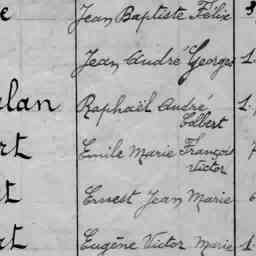 e Jean Baptiste Félix
Jean André Georges 1
lan Raphaël André 1
Colbert
rt Emile Marie François
Victor
t Ernest Jean Marie
at Eugène Victor Marie 1